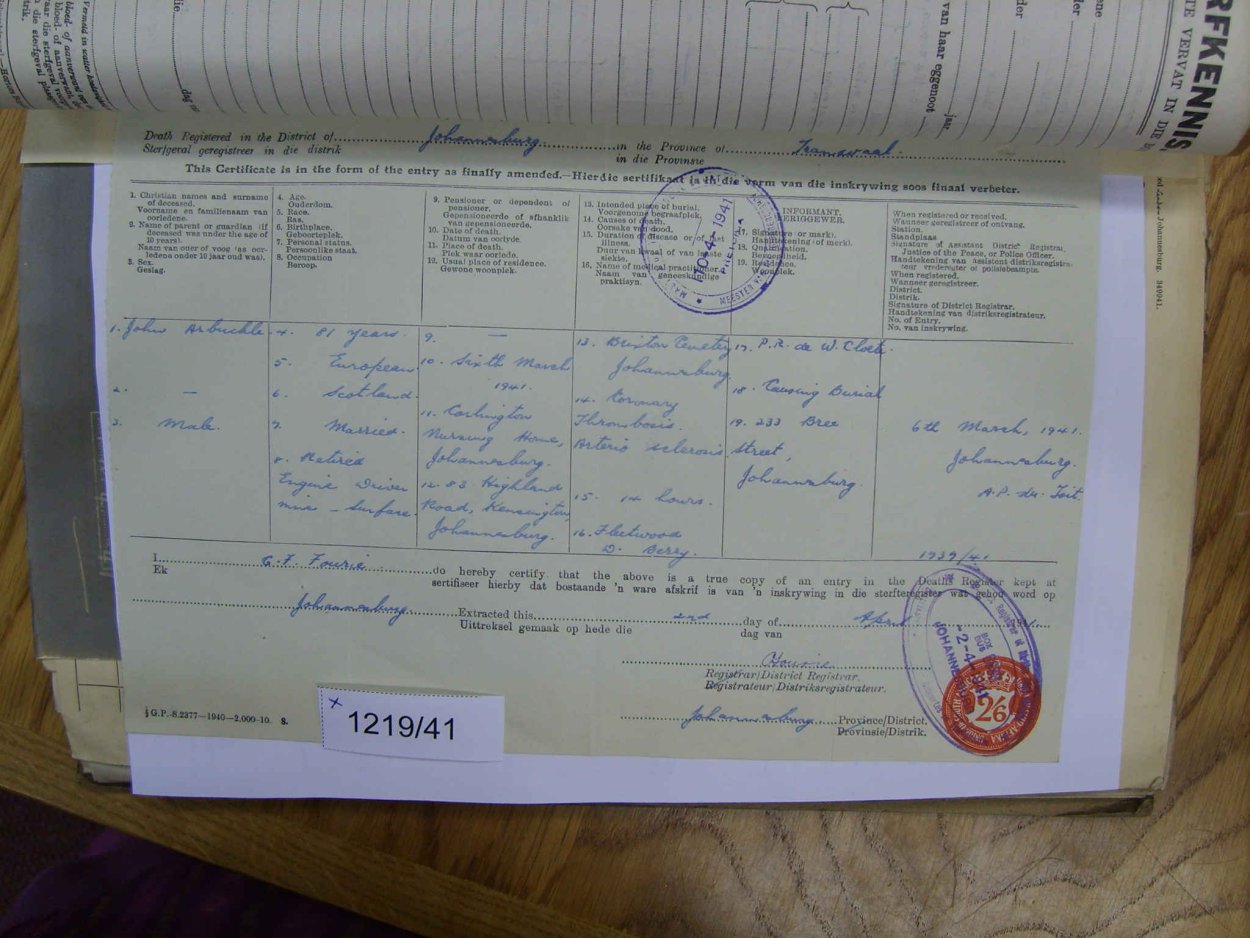 RFKENNIS,
TE VERVAT IN DIE
van haar eggenoot
jaar
dag
die
Death Registered in the District of Johannesburg in the Province of Transvaal
Sterfgeval geregistreer in die distrik in die Provinsie
This Certificate is in the form of the entry as finally amended.—Hierdie sertifikaat is in die vorm van die inskrywing soos finaal verbeter.
1. Christian names and surname of deceased.
Voorname en familienaam van oorledene.
2. Name of parent or guardian (if deceased was under the age of 10 years).
Naam van ouer of voog (as oorledene onder 10 jaar oud was).
3. Sex.
Geslag.
4. Age.
Ouderdom.
5. Race.
Ras.
6. Birthplace.
Geboorteplek.
7. Personal status.
Persoonlike staat.
8. Occupation
Beroep.
9. Pensioner or dependent of pensioner.
Gepensioneerde of afhanklik van gepensioneerde.
10. Date of death.
Datum van oorlyde.
11. Place of death.
Plek waar oorlede.
12. Usual place of residence.
Gewone woonplek.
13. Intended place of burial.
Voorgenome begraafplek.
14. Causes of death.
Oorsake van dood.
15. Duration of disease or of last illness.
Duur van kwaal of van laaste siekte.
16. Name of medical practitioner.
Naam van geneeskundige praktisyn.
INFORMANT.
17. Signature (or mark).
Handtekening (of merk).
18. Qualification.
19. Residence.
Woonplek.
When registered or received.
Wanneer geregistreer of ontvang.
Station.
Standplaas
Signature of Assistant District Registrar, Justice of the Peace, or Police Officer.
Handtekening van assistent distriksregistrateur vrederegter of polisiebeampte.
When registered.
Wanneer geregistreer.
District.
Distrik.
Signature of District Registrar.
Handtekening van distriksregistrateur.
No. of Entry.
No. van inskrywing.
10-4-1941
PRETORIA
1. John Arbuckle
2. —
3. Male.
4. 81 years.
5. European
6. Scotland.
7. Married.
8. Retired
Engine Driver
mine - surface.
9. —
10. Sixth March
1941.
11. Carlington
Nursing Home,
Johannesburg.
12. 83 Highland
Road, Kensington,
Johannesburg.
13. Brixton Cemetery
Johannesburg.
14. Coronary
Thrombosis.
Arterio sclerosis
15. 14 hours.
16. Fleetwood
D. Berry.
17. P.R. de W. Cloete.
18. Causing Burial
19. 233 Bree
Street,
Johannesburg.
6th March, 1941.
Johannesburg.
A.P. du Toit.
1939/41
I G.F. Fourie do hereby certify that the above is a true copy of an entry in the Deaths Register kept at
Ek sertifiseer hierby dat bostaande 'n ware afskrif is van 'n inskrywing in die sterfteregister wat gehou word op
Johannesburg Extracted this 2nd day of April
Uittreksel gemaak op hede die dag van
Registrar/District Registrar.
Registrateur/Distriksregistrateur.
Johannesburg Province/District.
Provinsie/Distrik.
G.P.-S.2377—1940—2,000-10. S.
x 1219/41
2/6